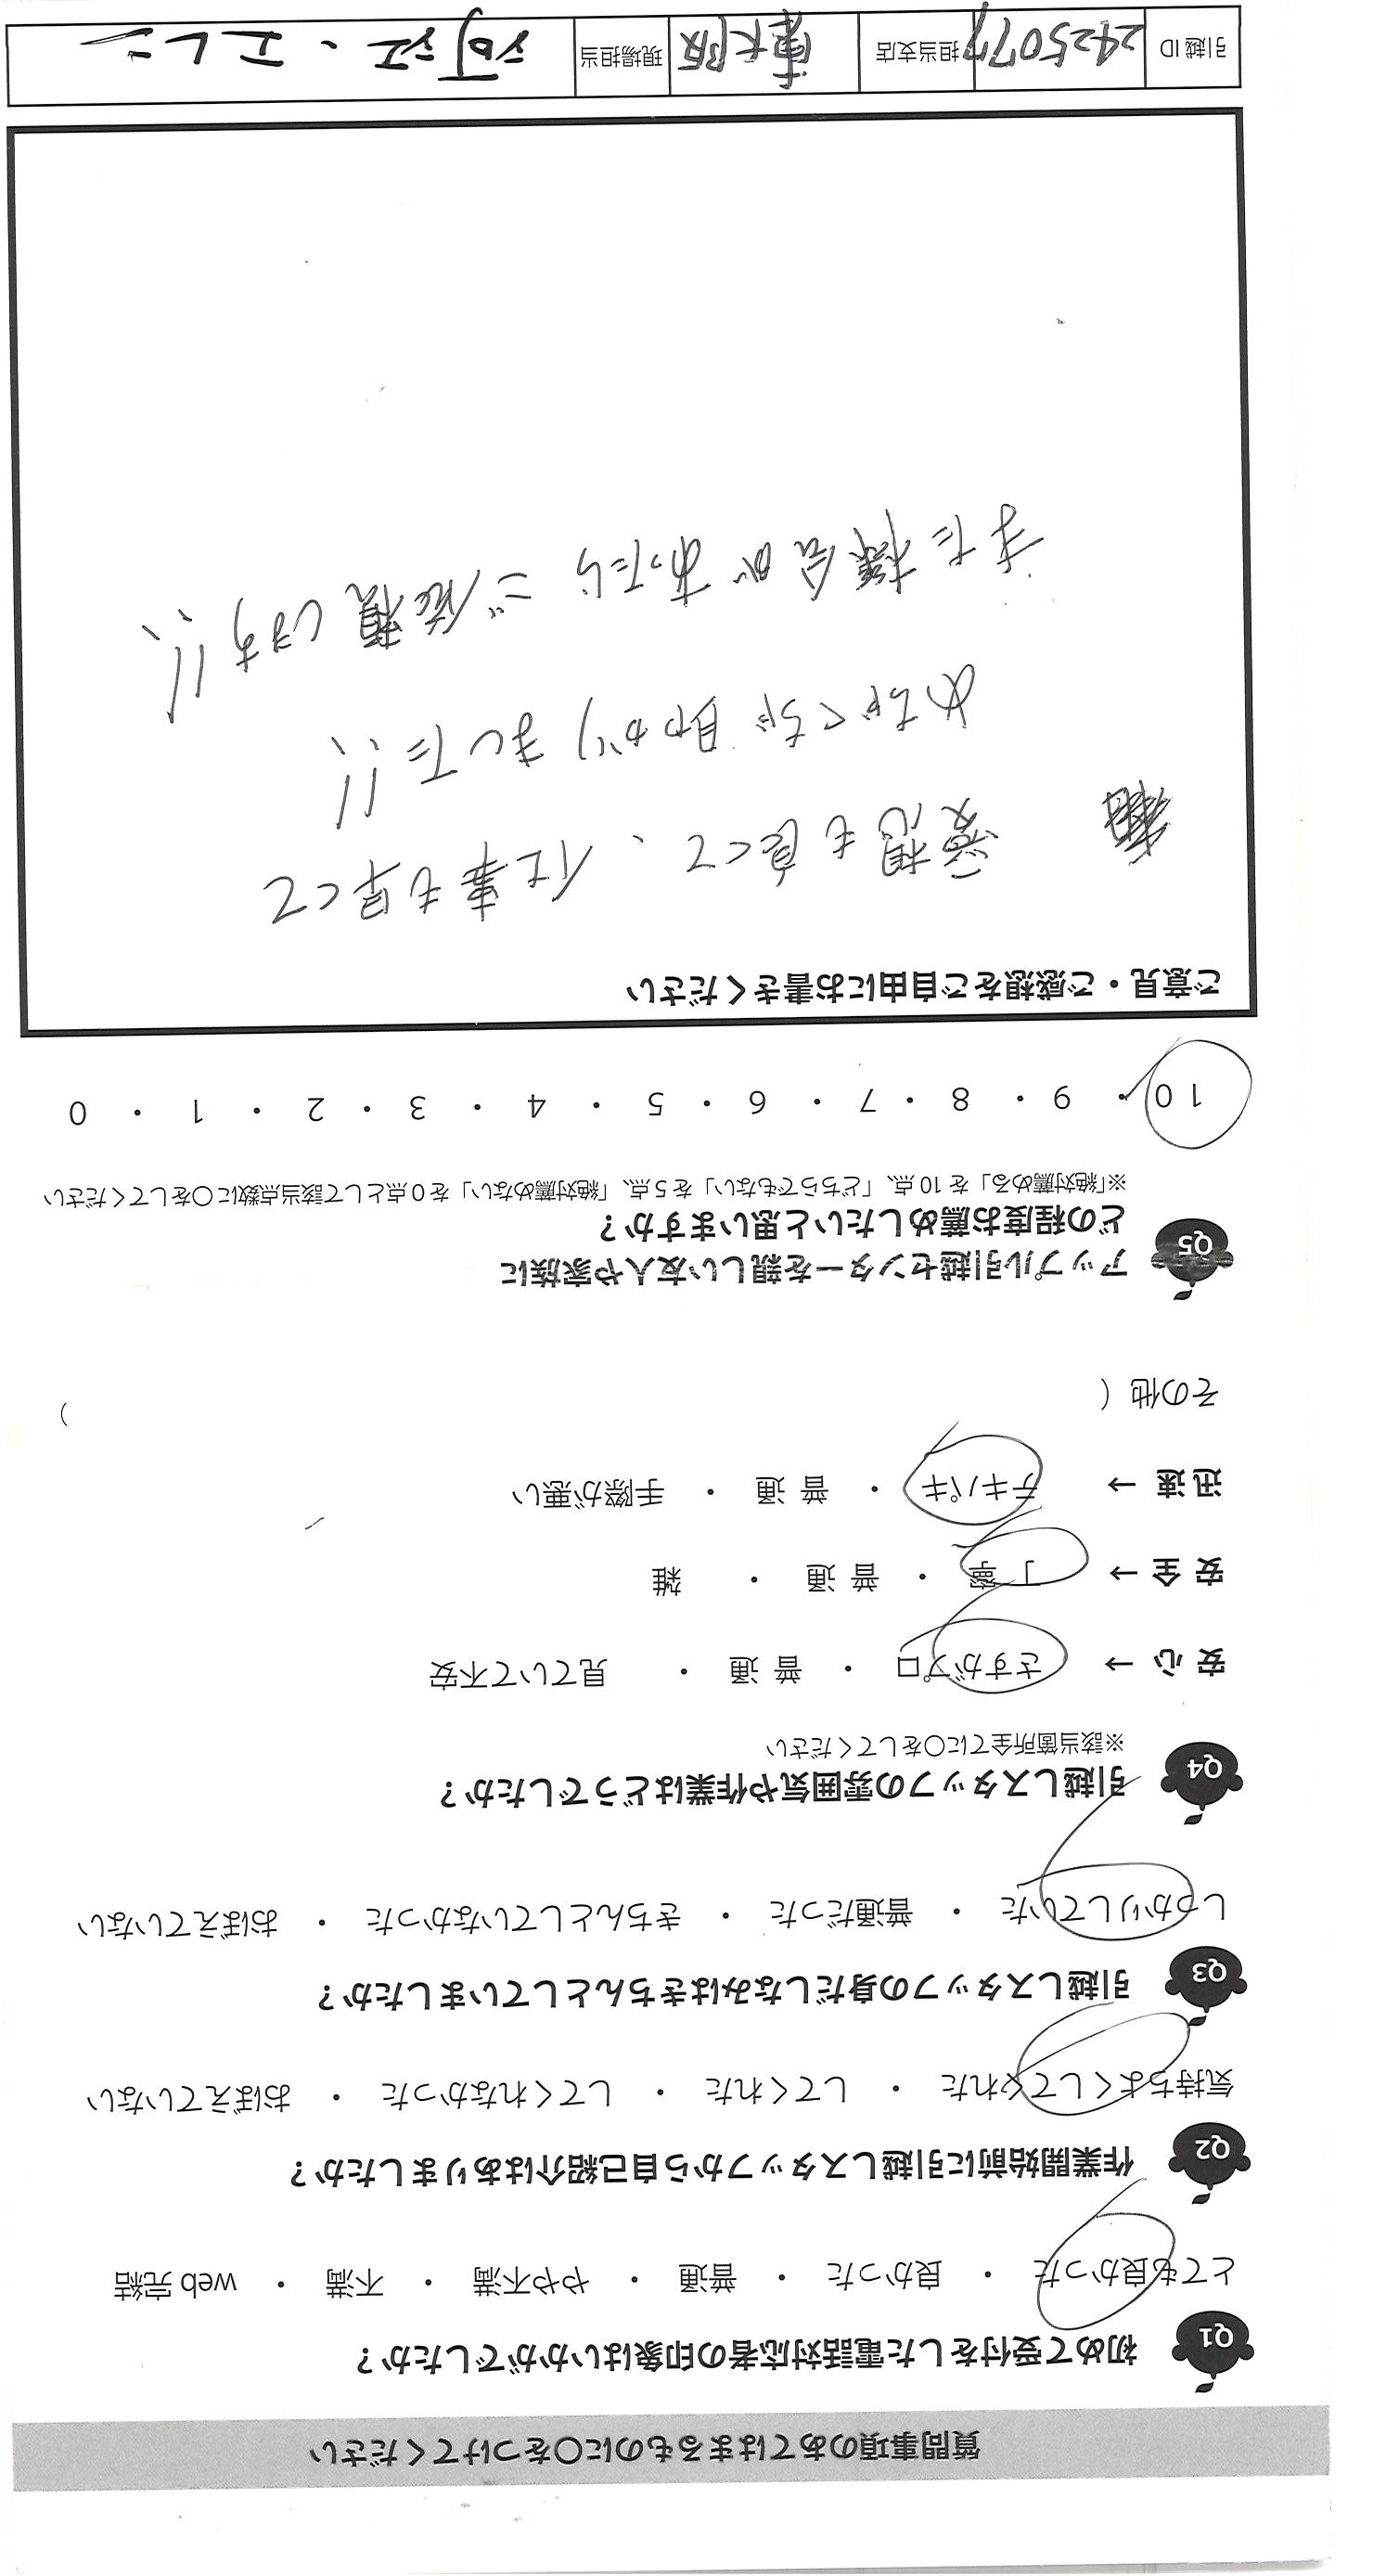 質問事項のあてはまるものに○をつけてください
Q1 初めて受付をした電話対応者の印象はいかがでしたか？
とても良かった ・ 良かった ・ 普通 ・ やや不満 ・ 不満 ・ web 完結
Q2 作業開始前に引越しスタッフから自己紹介はありましたか？
気持ちよくしてくれた ・ してくれた ・ してくれなかった ・ おぼえていない
Q3 引越しスタッフの身だしなみはきちんとしていましたか？
しっかりしていた ・ 普通だった ・ きちんとしていなかった ・ おぼえていない
Q4 引越しスタッフの雰囲気や作業はどうでしたか？
※該当箇所全てに○をしてください
安 心 → さすがプロ ・ 普 通 ・ 見ていて不安
安 全 → 丁 寧 ・ 普 通 ・ 雑
迅 速 → テキパキ ・ 普 通 ・ 手際が悪い
その他（ ）
Q5 アップル引越センターを親しい友人や家族に
どの程度お薦めしたいと思いますか？
※「絶対薦める」を 10 点、「どちらでもない」を 5 点、「絶対薦めない」を 0 点として該当点数に○をしてください
10 ・ 9 ・ 8 ・ 7 ・ 6 ・ 5 ・ 4 ・ 3 ・ 2 ・ 1 ・ 0
ご意見・ご感想をご自由にお書きください
愛想も良くて、仕事も早くて
めちゃくちゃ助かりました!!
また機会があったらご依頼します!!
引越 ID 2425077 担当支店 東大阪 現場担当 河江、エレン